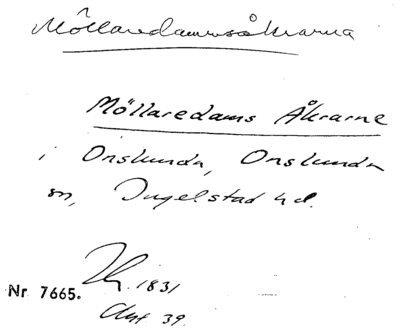 Möllaredamsåkrarna
Möllaredams Åkrarne
i Onslunda, Onslunda
sn, Ingelstad hd.
1831
Nr 7665.
Akt 39.